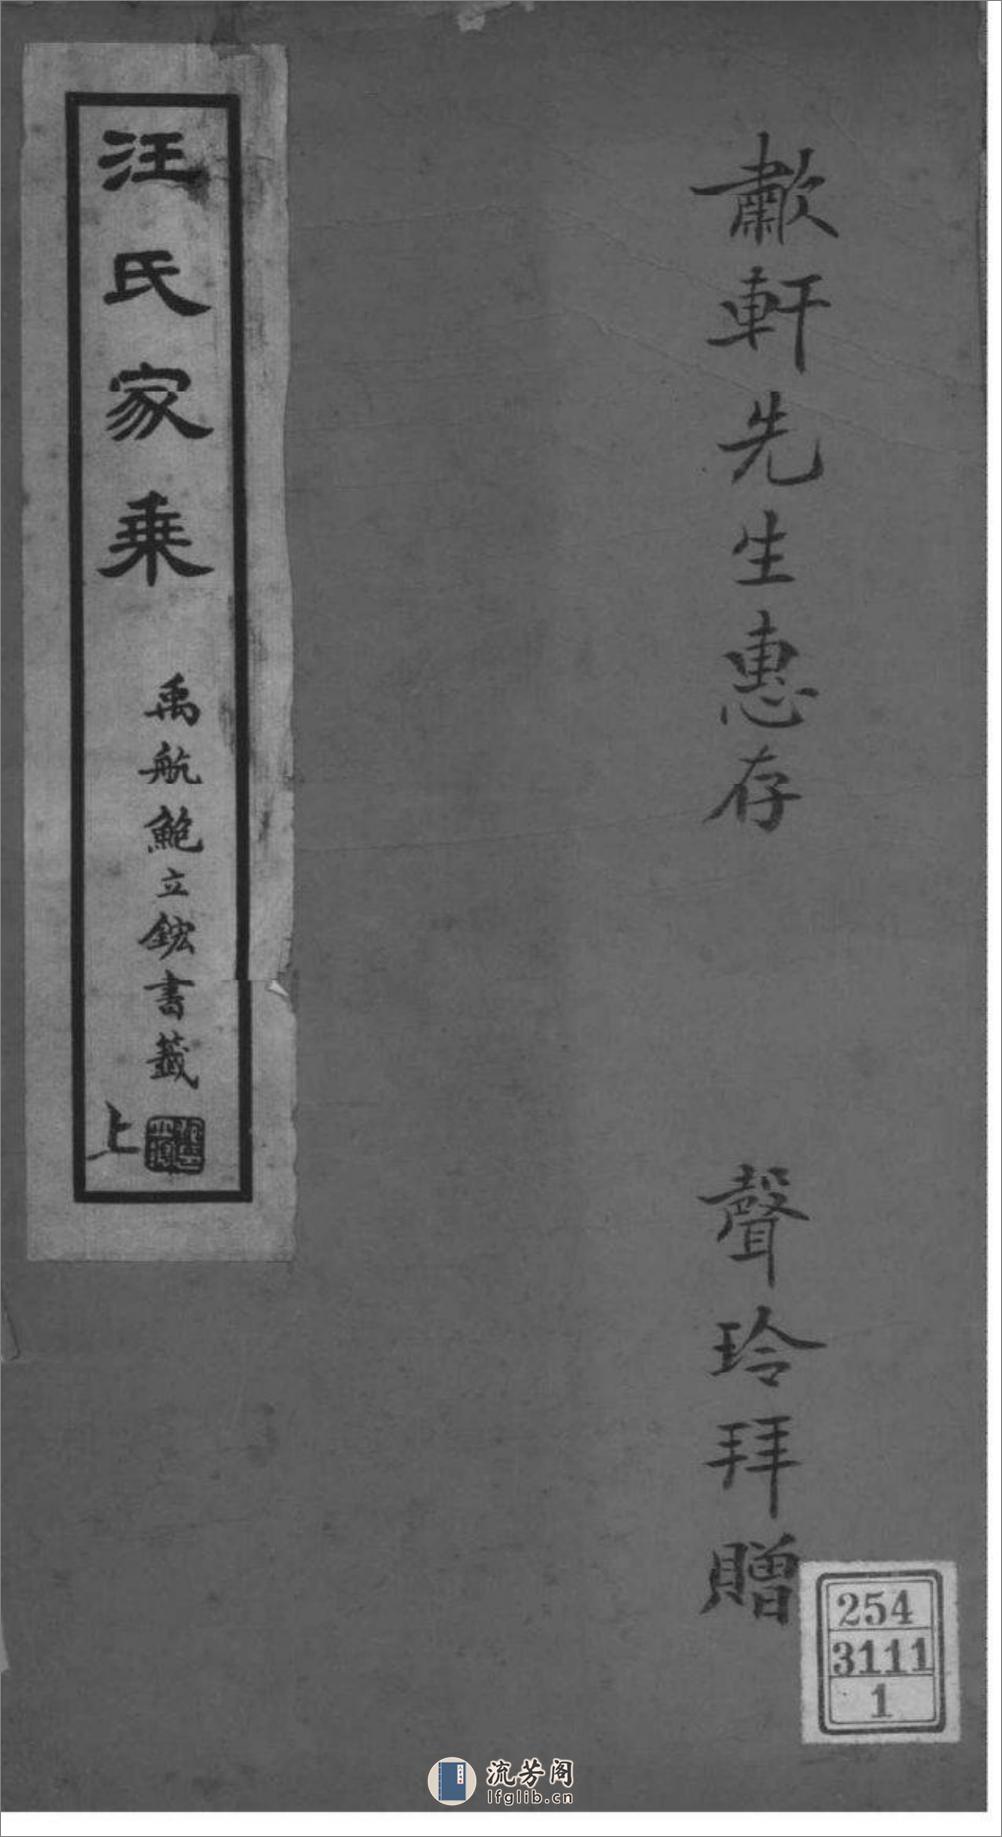 歗軒先生惠存
聲玲拜贈
汪氏家乘
禹航鮑立鋐書籤
上
254
3111
1
流芳阁
lfglib.cn